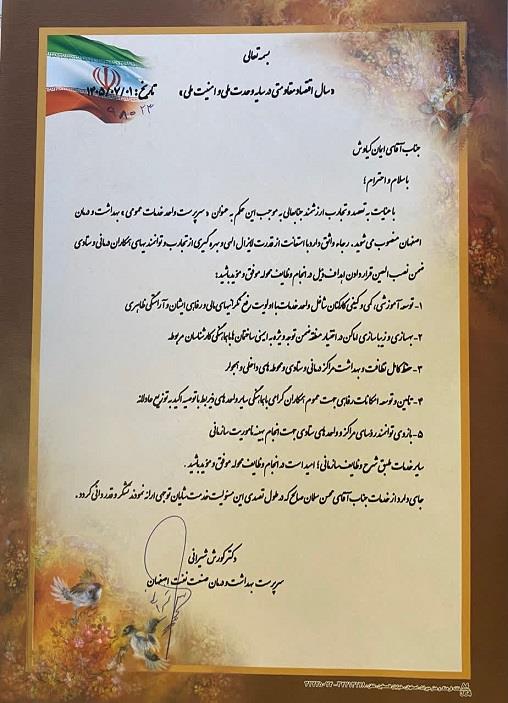 بسمه تعالی
«سال اقتصاد مقاومتی در سایه وحدت ملی و امنیت ملی»
تاریخ: ۱۴۰۵/۰۷/۰۱
۹۸۰۲۳
جناب آقای ایمان کیاوش
با سلام و احترام؛
با عنایت به تعهد و تجارب ارزشمند جنابعالی به موجب این حکم به عنوان «سرپرست واحد خدمات عمومی» بهداشت و درمان
اصفهان منصوب می شوید. رجاء واثق دارد با استعانت از قدرت لایزال الهی و بهره گیری از تجارب و توانمندیهای همکاران درمانی و ستادی
ضمن نصب العین قرار دادن اهداف ذیل در انجام وظایف محوله موفق و موید باشید:
۱- توسعه آموزشی، کمی و کیفی کارکنان شاغل واحد خدمات با اولویت رفع نگرانیهای مالی و رفاهی ایشان و آراستگی ظاهری
۲- بهسازی و زیباسازی اماکن در اختیار منطقه ضمن توجه ویژه به ایمنی ساختمان ها با هماهنگی کارشناسان مربوطه
۳- حفظ کامل نظافت و بهداشت مراکز درمانی و ستادی و محوطه های داخلی و همجوار
۴- تامین و توسعه امکانات رفاهی جهت عموم همکاران گرامی با هماهنگی سایر واحدهای ذیربط با توصیه اکید به توزیع عادلانه
۵- بازوی توانمند روسای مراکز و واحدهای ستادی جهت انجام بهینه ماموریت سازمانی
سایر خدمات طبق شرح وظایف سازمانی؛ امید است در انجام وظایف محوله موفق و موید باشید.
جای دارد از خدمات جناب آقای محسن سلمان صالح که در طول تصدی این مسئولیت خدمت شایان توجهی ارائه نمودند تشکر و قدردانی گردد.
دکتر کورش شیرانی
سرپرست بهداشت و درمان صنعت نفت اصفهان